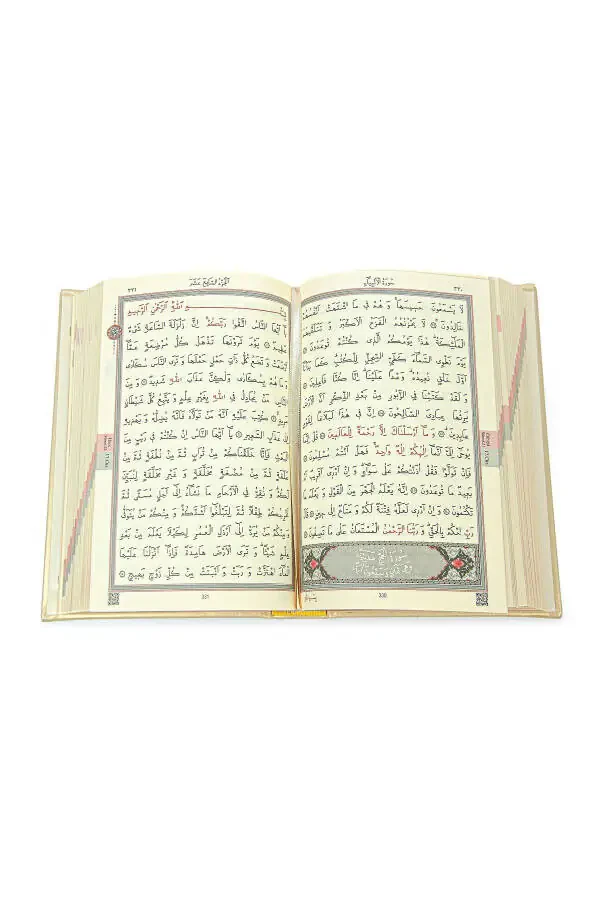 سُورَةُ الْاَنْبِيَاءِ
٣٣٠
لَا يَسْمَعُونَ حَسِيسَهَا وَهُمْ فِي مَا اشْتَهَتْ اَنْفُسُهُمْ
خَالِدُونَ لَا يَحْزُنُهُمُ الْفَزَعُ الْاَكْبَرُ وَتَتَلَقّٰيهُمُ
الْمَلٰٓئِكَةُ هٰذَا يَوْمُكُمُ الَّذِي كُنْتُمْ تُوعَدُونَ
يَوْمَ نَطْوِي السَّمَاءَ كَطَيِّ السِّجِلِّ لِلْكُتُبِ كَمَا بَدَأْنَا
اَوَّلَ خَلْقٍ نُعِيدُهُ وَعْدًا عَلَيْنَا اِنَّا كُنَّا فَاعِلِينَ
وَلَقَدْ كَتَبْنَا فِي الزَّبُورِ مِنْ بَعْدِ الذِّكْرِ اَنَّ الْاَرْضَ
يَرِثُهَا عِبَادِيَ الصَّالِحُونَ اِنَّ فِي هٰذَا لَبَلَاغًا لِقَوْمٍ
عَابِدِينَ وَمَا اَرْسَلْنَاكَ اِلَّا رَحْمَةً لِلْعَالَمِينَ قُلْ اِنَّمَا
يُوحٰى اِلَيَّ اَنَّمَا اِلٰهُكُمْ اِلٰهٌ وَاحِدٌ فَهَلْ اَنْتُمْ مُسْلِمُونَ
فَاِنْ تَوَلَّوْا فَقُلْ اٰذَنْتُكُمْ عَلٰى سَوَاءٍ وَاِنْ اَدْرِي اَقَرِيبٌ اَمْ
بَعِيدٌ مَا تُوعَدُونَ اِنَّهُ يَعْلَمُ الْجَهْرَ مِنَ الْقَوْلِ وَيَعْلَمُ مَا
تَكْتُمُونَ وَاِنْ اَدْرِي لَعَلَّهُ فِتْنَةٌ لَكُمْ وَمَتَاعٌ اِلٰى حِينٍ قَالَ
رَبِّ احْكُمْ بِالْحَقِّ وَرَبُّنَا الرَّحْمٰنُ الْمُسْتَعَانُ عَلٰى مَا تَصِفُونَ
330
اَلْجُزْءُ السَّابِعَ عَشَرَ
٣٣١
بِسْمِ اللّٰهِ الرَّحْمٰنِ الرَّحِيمِ
يَا اَيُّهَا النَّاسُ اتَّقُوا رَبَّكُمْ اِنَّ زَلْزَلَةَ السَّاعَةِ شَيْءٌ
عَظِيمٌ يَوْمَ تَرَوْنَهَا تَذْهَلُ كُلُّ مُرْضِعَةٍ عَمَّا
اَرْضَعَتْ وَتَضَعُ كُلُّ ذَاتِ حَمْلٍ حَمْلَهَا وَتَرَى النَّاسَ سُكَارٰى
وَمَا هُمْ بِسُكَارٰى وَلٰكِنَّ عَذَابَ اللّٰهِ شَدِيدٌ وَمِنَ
النَّاسِ مَنْ يُجَادِلُ فِي اللّٰهِ بِغَيْرِ عِلْمٍ وَيَتَّبِعُ كُلَّ شَيْطَانٍ
مَرِيدٍ كُتِبَ عَلَيْهِ اَنَّهُ مَنْ تَوَلَّاهُ فَاَنَّهُ يُضِلُّهُ وَيَهْدِيهِ
اِلٰى عَذَابِ السَّعِيرِ يَا اَيُّهَا النَّاسُ اِنْ كُنْتُمْ فِي رَيْبٍ مِنَ
الْبَعْثِ فَاِنَّا خَلَقْنَاكُمْ مِنْ تُرَابٍ ثُمَّ مِنْ نُطْفَةٍ ثُمَّ مِنْ
عَلَقَةٍ ثُمَّ مِنْ مُضْغَةٍ مُخَلَّقَةٍ وَغَيْرِ مُخَلَّقَةٍ لِنُبَيِّنَ
لَكُمْ وَنُقِرُّ فِي الْاَرْحَامِ مَا نَشَاءُ اِلٰى اَجَلٍ مُسَمًّى ثُمَّ
نُخْرِجُكُمْ طِفْلًا ثُمَّ لِتَبْلُغُوا اَشُدَّكُمْ وَمِنْكُمْ مَنْ يُتَوَفّٰى
وَمِنْكُمْ مَنْ يُرَدُّ اِلٰى اَرْذَلِ الْعُمُرِ لِكَيْلَا يَعْلَمَ مِنْ بَعْدِ
عِلْمٍ شَيْئًا وَتَرَى الْاَرْضَ هَامِدَةً فَاِذَا اَنْزَلْنَا عَلَيْهَا
الْمَاءَ اهْتَزَّتْ وَرَبَتْ وَاَنْبَتَتْ مِنْ كُلِّ زَوْجٍ بَهِيجٍ
331